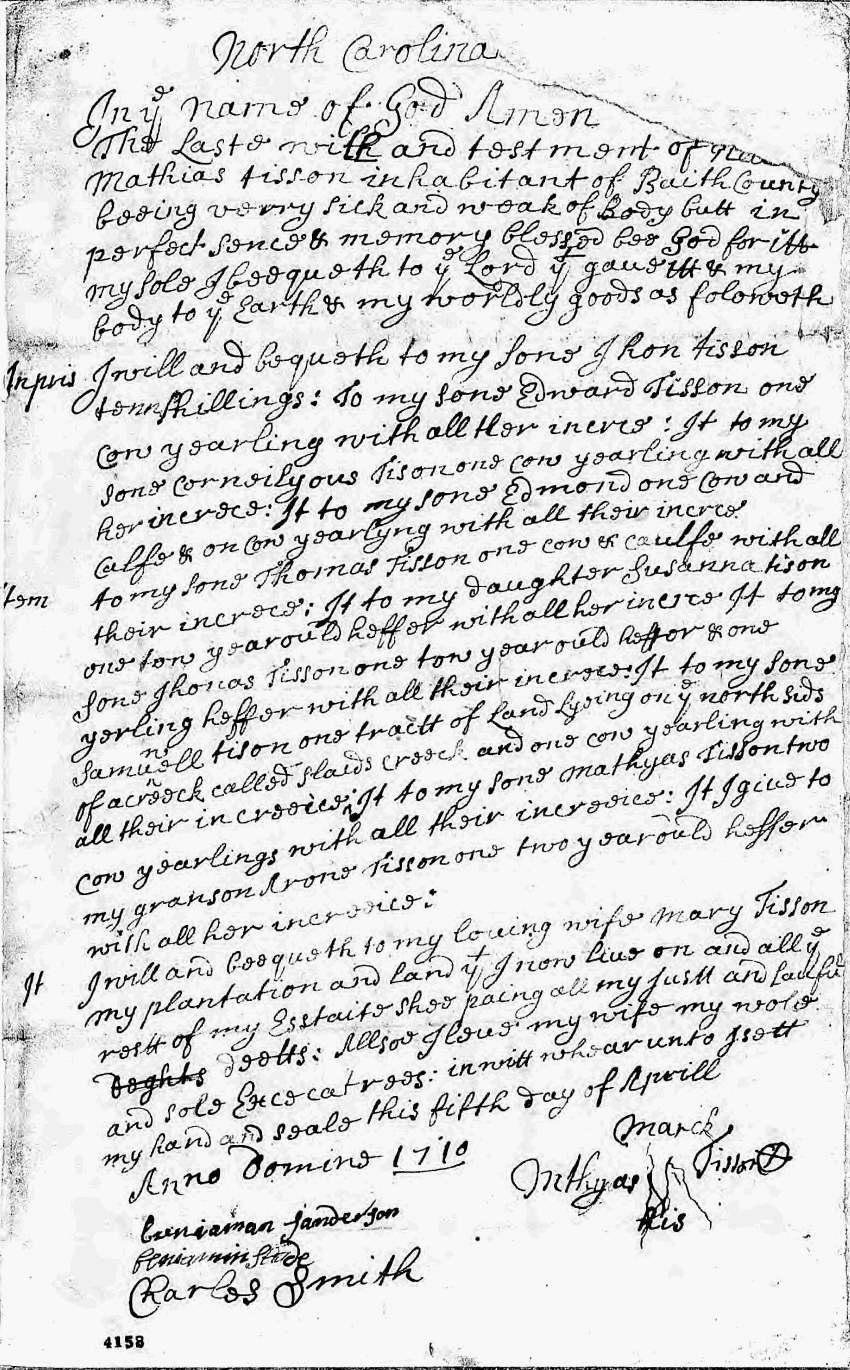 North Carolina
In ye name of God Amen
The Laste will and testment of
Mathias tisson inhabitant of Baith County
beeing verry sick and weak of Body butt in
perfect sence & memory blessed bee God for itt
my sole I beequeth to ye Lord yt gave itt & my
body to ye Earth & my worldly goods as foloweth
Inpris I will and bequeth to my sone Jhon tisson
tenn shillings: To my sone Edward Tisson one
cow yearling with all Her incrce: It to my
sone Corneilyous Tison one cow yearling with all
her increce: It to my sone Edmond one Cow and
Calfe & on Cow yearlyng with all their incrce
Item to my sone Thomas Tisson one cow & caulfe with all
their increce: It to my daughter Susanna tison
one tow year ould heffer with all her incrce It to my
sone Jhonas Tisson one tow year ould heffor & one
yerling heffer with all their increce: It to my sone
Samuell tison one tractt of Land Lyeing on ye north side
of a creeck called slaids creeck and one cow yearling with
all their increeice: It to my sone Mathyas Tisson two
cow yearlings with all their increeice: It I give to
my granson Arone Tisson one two year ould heffer
with all her increeice:
It I will and beequeth to my loving wife Mary Tisson
my plantation and land yt I now live on and all ye
restt of my Esstaite shee paing all my justt and laufull
deghts deetts: Allsoe I leve my wife my wole
and sole Excecatrees: in witt whearunto I sett
my hand and seale this fifth day of Aprill
Anno Domine 1710
marck
Mthyas Tisson
his
beniaman sanderson
beniamin slade
Charles Smith
4158